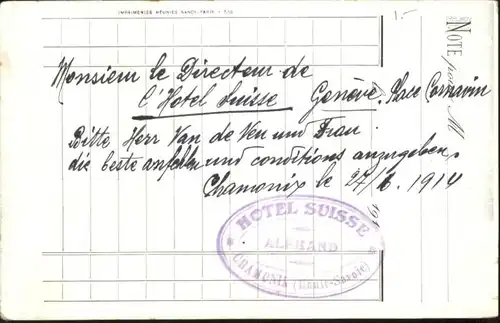 IMPRIMERIES RÉUNIES NANCY, PARIS
1.-
NOTE pour M
Monsieur le Directeur de
l'Hotel Suisse Genève, Place Cornavin
Bitte Herr Van de Ven und Frau
die beste und conditions anzugeben.
Chamonix le 27/6. 1914
191
HOTEL SUISSE
CHAMONIX (Haute-Savoie)